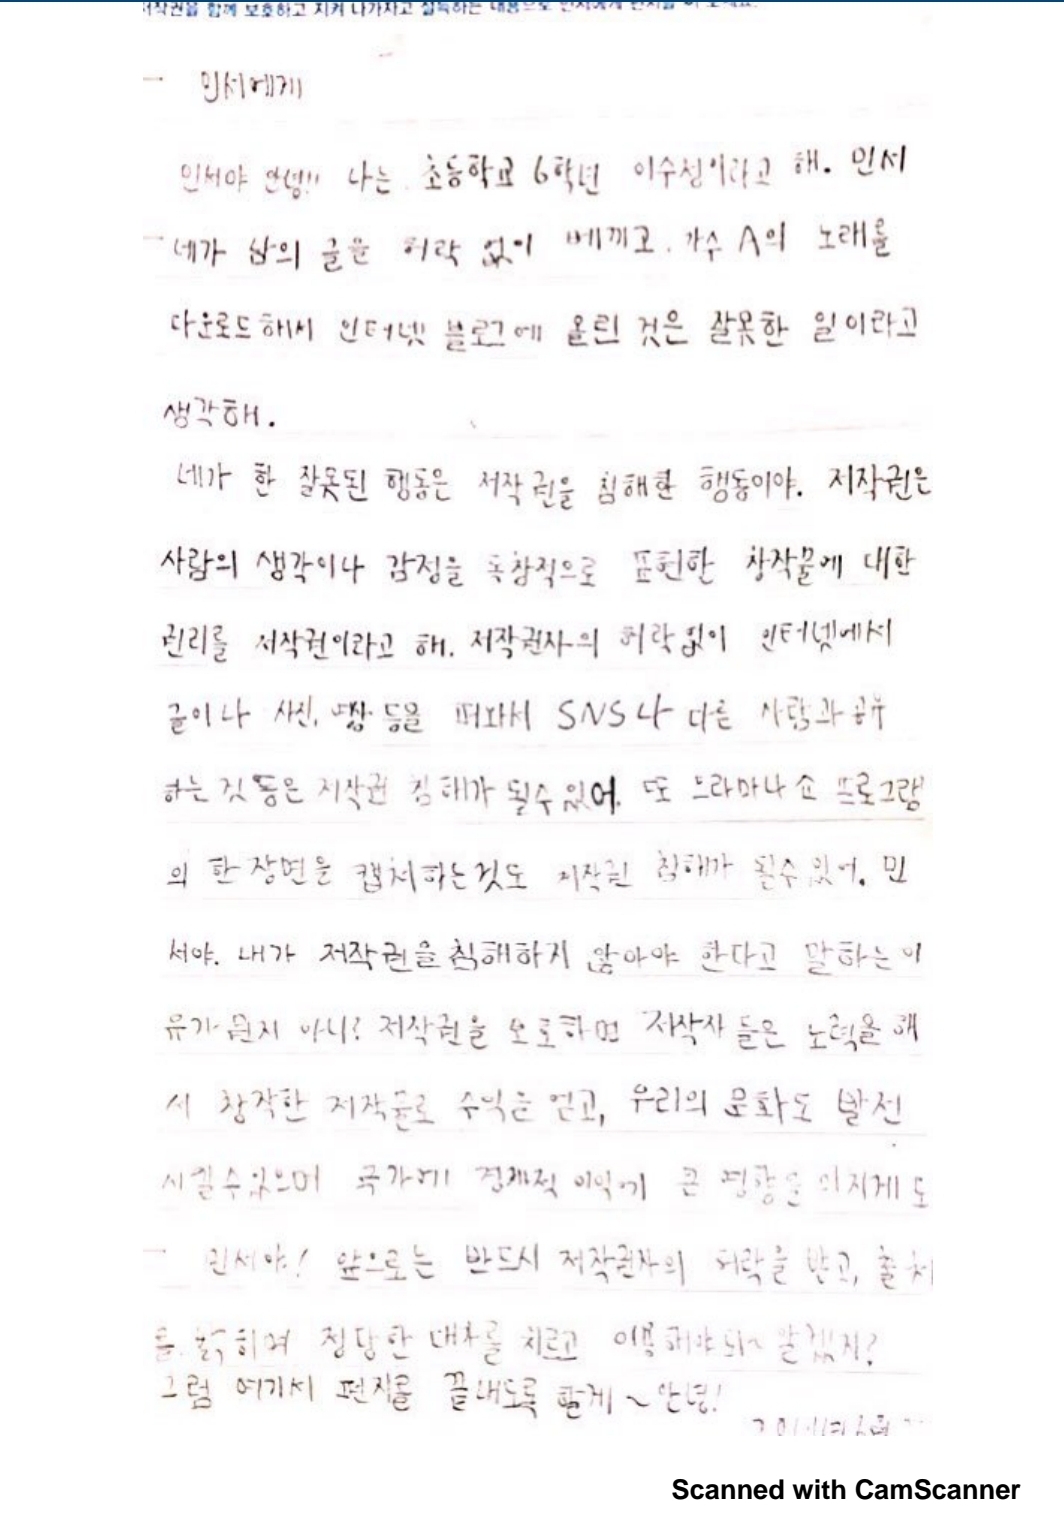 저작권을 함께 보호하고 지켜 나가자고 설득하는 내용으로 민서에게 편지를 써 보세요.
민서에게
민서야 안녕!! 나는 초등학교 6학년 이수성이라고 해. 민서
네가 남의 글을 허락 없이 베끼고. 가수 A의 노래를
다운로드해서 인터넷 블로그에 올린 것은 잘못한 일이라고
생각해.
네가 한 잘못된 행동은 저작권을 침해한 행동이야. 저작권은
사람의 생각이나 감정을 독창적으로 표현한 창작물에 대한
권리를 저작권이라고 해. 저작권자의 허락없이 인터넷에서
글이나 사진, 영상 등을 퍼와서 SNS나 다른 사람과 공유
하는 것 등은 저작권 침해가 될수있어. 또 드라마나 쇼 프로그램
의 한 장면을 캡쳐하는것도 저작권 침해가 될수있어. 민
서야. 내가 저작권을 침해하지 않아야 한다고 말하는 이
유가 뭔지 아니? 저작권을 보호하면 저작자 들은 노력을 해
서 창작한 저작물로 수익을 얻고, 우리의 문화도 발전
시킬수있으며 국가에 경제적 이익에 큰 영향을 미치게 도
민서야! 앞으로는 반드시 저작권자의 허락을 받고, 출처
를 밝히며 정당한 대가를 치르고 이용해야돼~ 알겠지?
그럼 여기서 편지를 끝내도록 할게~ 안녕!
Scanned with CamScanner